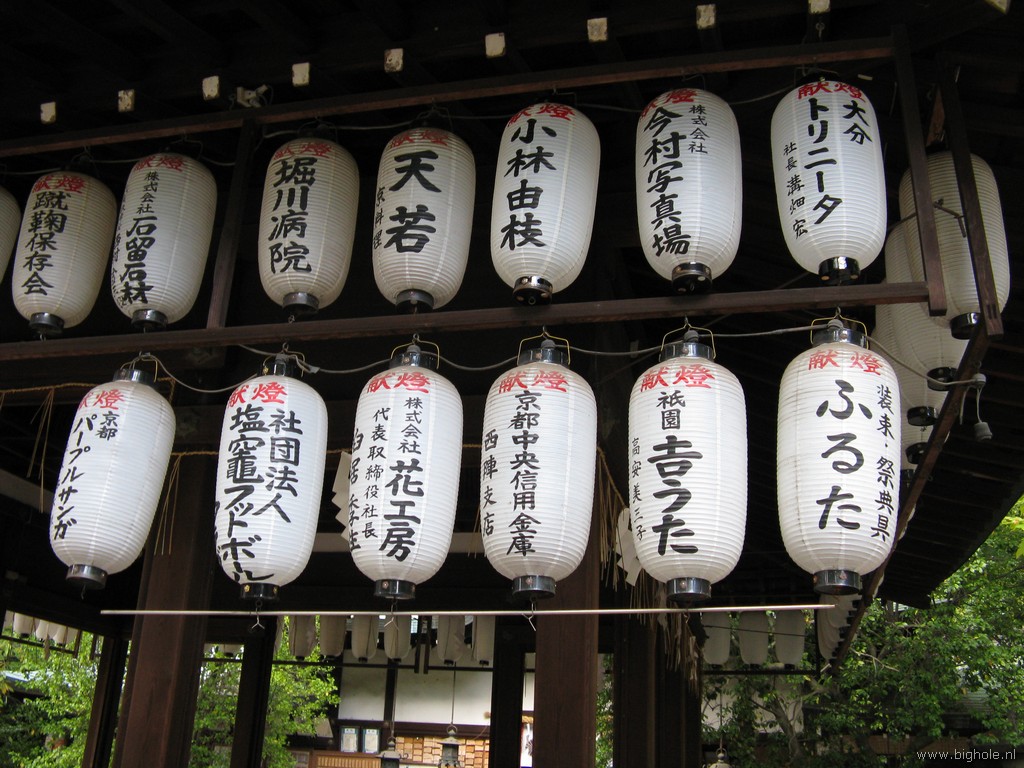 献燈
蹴鞠保存会
献燈
株式会社
石留石材
献燈
堀川病院
献燈
天若
京料理
献燈
小林由枝
献燈
株式会社
今村写真場
献燈
大分
トリニータ
社長 溝畑 宏
献燈
京都
パープルサンガ
献燈
社団法人
塩竈フットボール
献燈
株式会社
花工房
代表取締役社長
献燈
京都中央信用金庫
西陣支店
献燈
祇園
吉うた
高安美三子
献燈
装束 祭典具
ふるた
www.bighole.nl